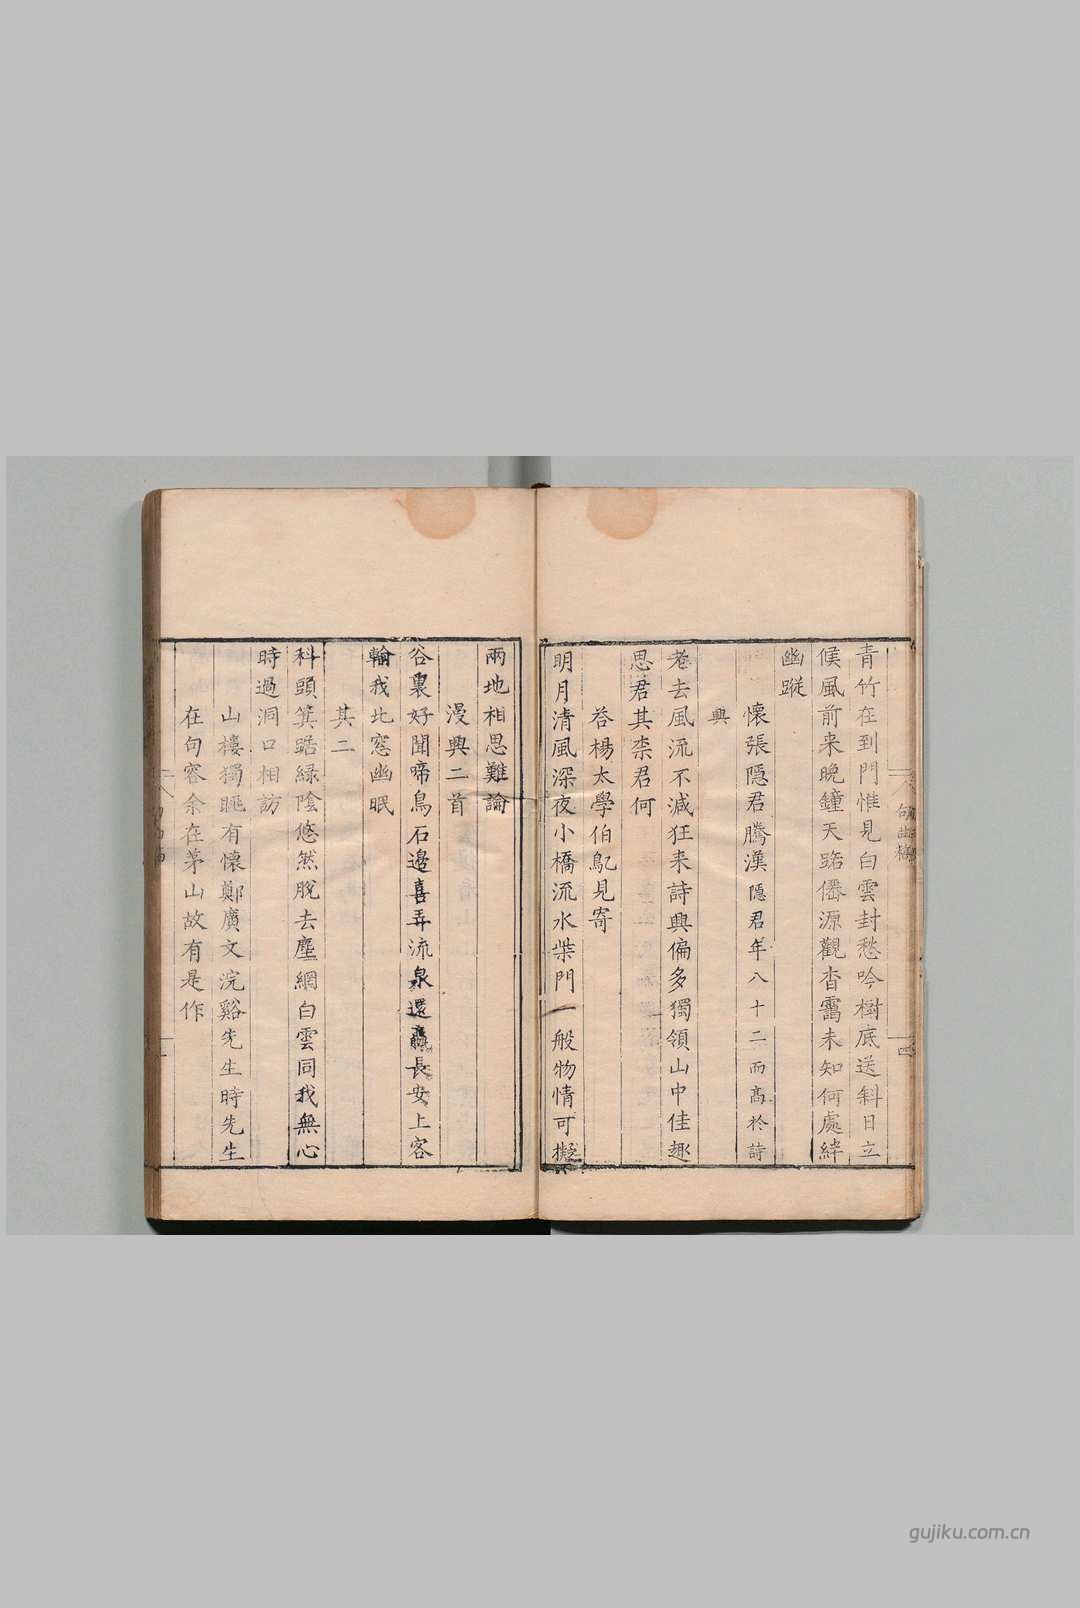 青竹在到門惟見白雲封愁吟樹底送斜日立
候風前来晚鐘天路僊源觀杳靄未知何處緯
幽蹤
懷張隱君騰漢隱君年八十二而髙於詩
興
老去風流不減狂来詩興偏多獨領山中佳趣
思君其柰君何
答楊太學伯鳦見寄
明月清風深夜小橋流水柴門一般物情可擬
兩地相思難論
漫興二首
谷裏好聞啼鳥石邉喜弄流泉還長安上客
輸我此窓幽眠
其二
科頭箕踞緑陰悠然脫去塵網白雲同我無心
時過洞口相訪
山樓獨眺有懷鄭廣文浣谿先生時先生
在句容余在茅山故有是作
句曲稿
gujiku.com.cn